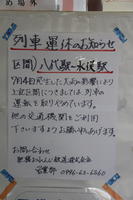 列車運休のお知らせ
区間) 八代駅~水俣駅
7月4日発生した大雨の影響により
上記区間につきましては、列車の
運転を取りやめています。
他の交通機関をご利用
下さいますようお願いいたします。
お問い合わせ
肥薩おれんじ鉄道株式会社
営業部 0996-63-6860